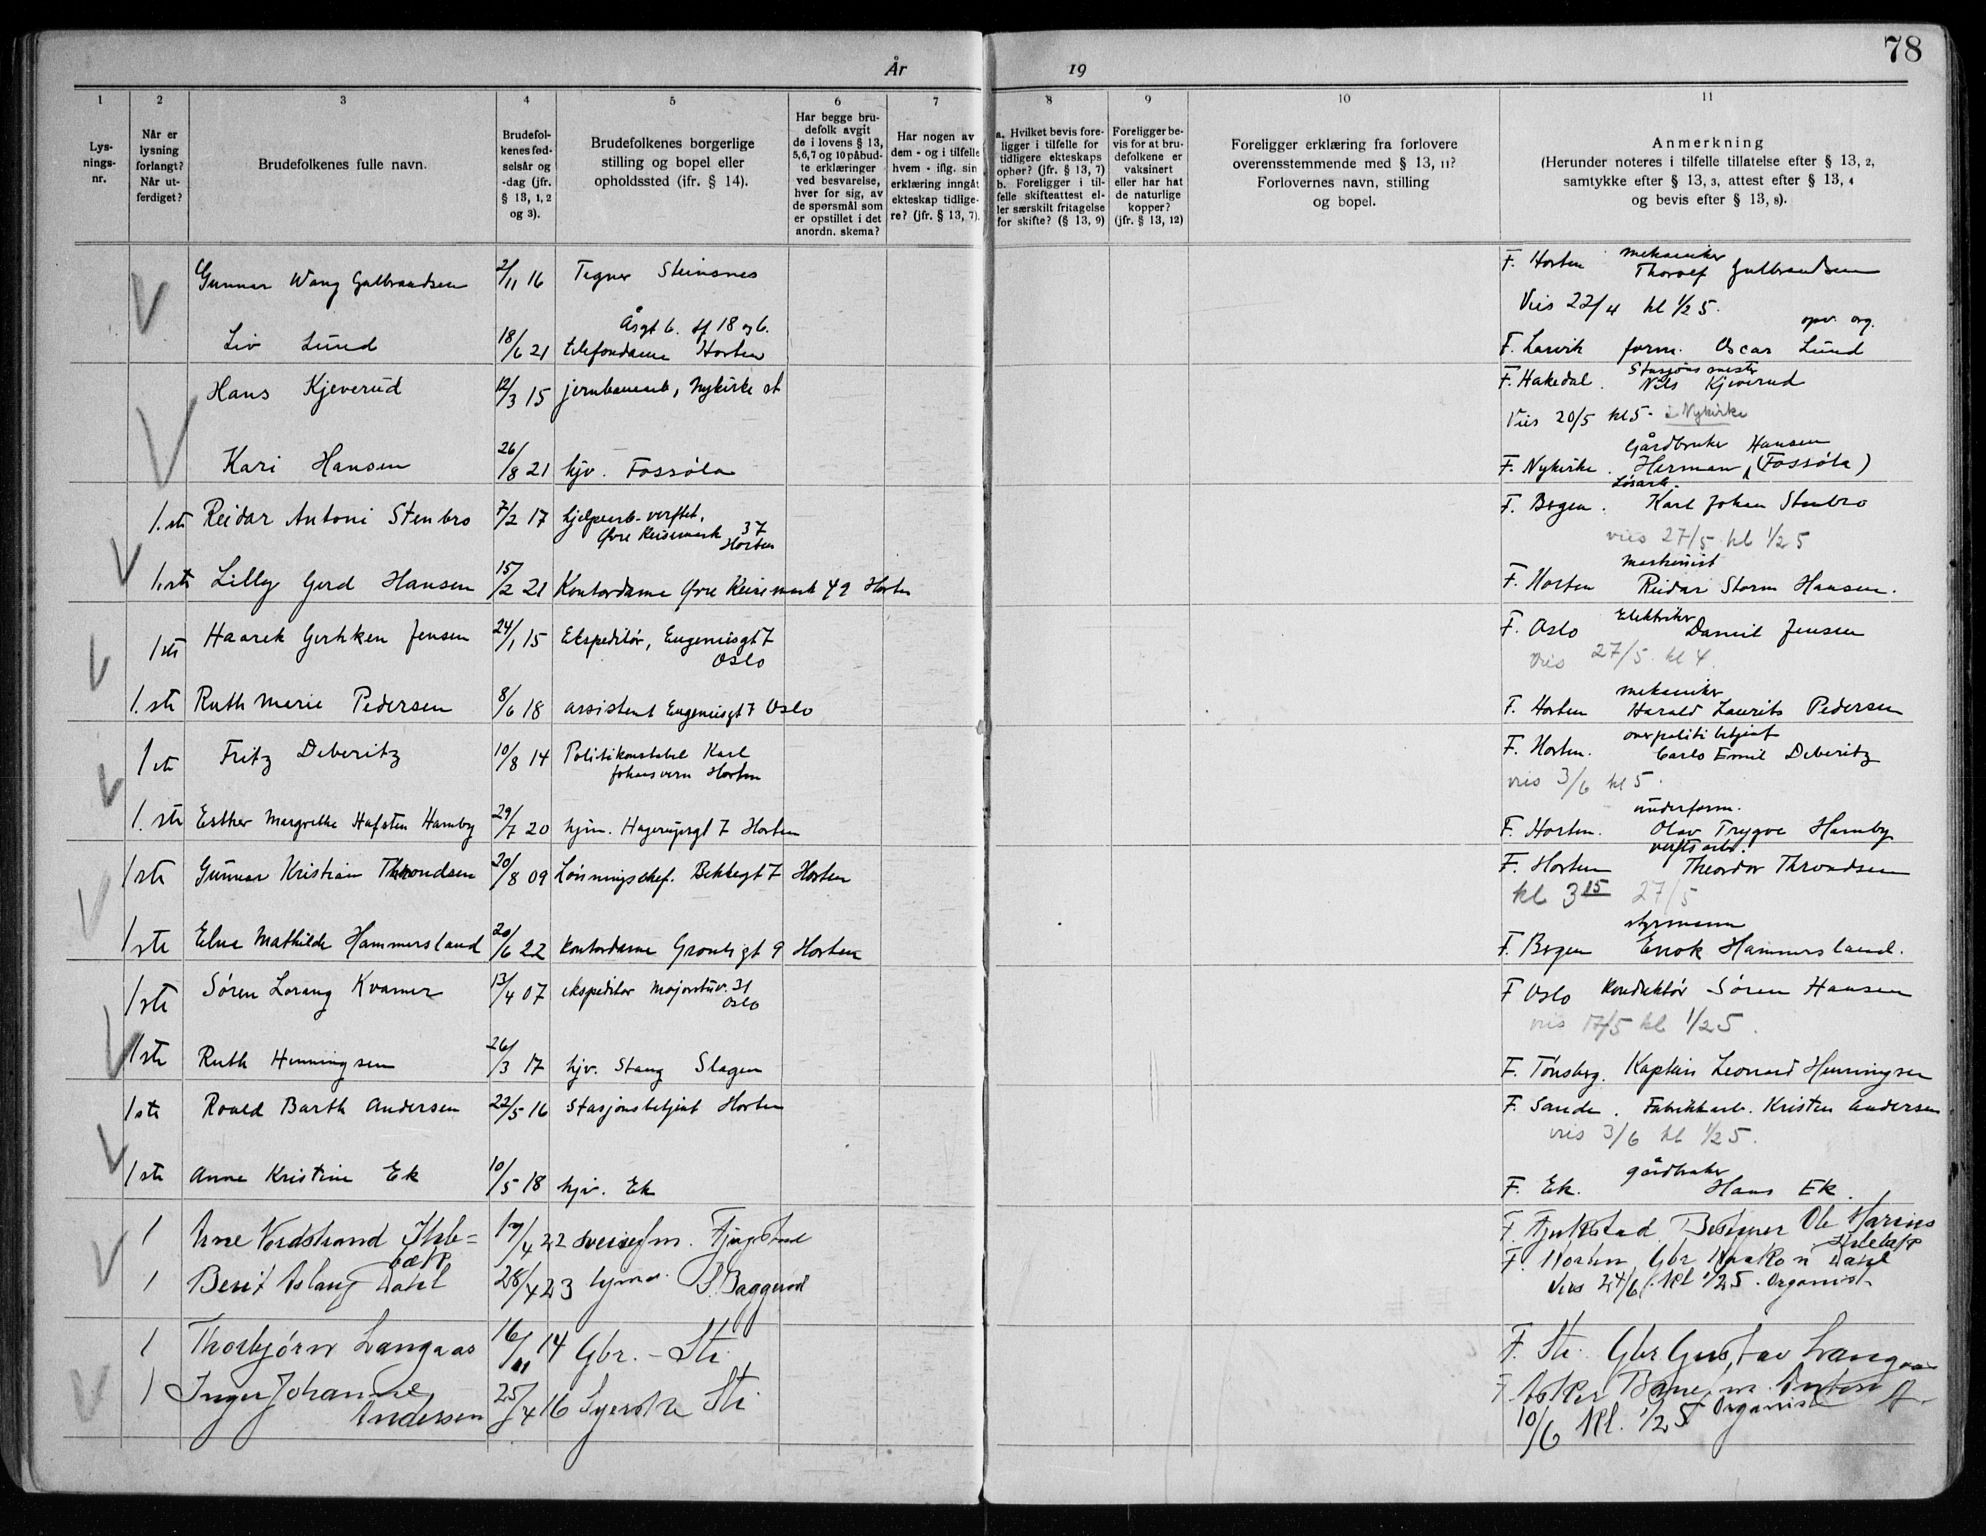 78
År 19
1 2 3 4 5 6 7 8 9 10 11
Lys-
nings-
nr.
Når er
lysning
forlangt?
Når ut-
ferdiget?
Brudefolkenes fulle navn.
Brudefol-
kenes fød-
selsår og
-dag (jfr.
§ 13, 1, 2
og 3).
Brudefolkenes borgerlige
stilling og bopel eller
opholdssted (ifr. § 14).
Har begge bru-
defolk avgit
de i lovens § 13,
5,6,7 og 10 påbud-
te erklæringer
ved besvarelse,
hver for sig, av
de spørsmål som
er opstillet i det
anordn. skema?
Har nogen av
dem - og i tilfelle
hvem - iflg. sin
erklæring inngåt
ekteskap tidlige-
re? (jfr. § 13, 7).
a. Hvilket bevis fore-
ligger i tilfelle for
tidligere ekteskaps
ophør? (jfr. § 13, 7)
b. Foreligger i til-
felle skifteattest el-
ler særskilt fritagelse
for skifte? (§ 13, 9)
Foreligger be-
vis for at bru-
defolkene er
vaksinert
eller har hat
de naturlige
kopper?
(jfr. § 13, 12)
Foreligger erklæring fra forlovere
overensstemmende med § 13, 11?
Forlovernes navn, stilling
og bopel.
Anmerkning
(Herunder noteres i tilfelle tillatelse efter § 13, 2,
samtykke efter § 13, 3, attest efter § 13, 4
og bevis efter § 13, 8).
Gunnar Wang Gulbrandsen 2/11 16 Tegner Steinsnes F. Horten mekaniker Thoralf Gulbrandsen
Vies 22/4 kl 1/2 5.
Liv Lund 18/6 21 Åsgt 6. telefondame Horten F. Larvik form. Oscar Lund
Hans Kjeverud 12/3 15 jernbanearb, Nykirke st F. Hakedal. Stasjonsmester Nils Kjeverud
Vies 20/5 kl 5 - i Nykirke
Kari Hansen 26/8 21 hjv. Fossøla F. Nykirke. Gårdbruker Herman Hansen (Fossøla)
1.ste Reidar Antoni Stenbro 7/2 17 hjelpearb. verftet, Øvre Keisemark 37 Horten F. Bergen. Løsarb. Karl Johan Stenbro
vies 27/5 kl 1/2 5
1.ste Lilly Gerd Hansen 15/2 21 Kontordame Øvre Keisemark 42 Horten F. Horten maskinist Reidar Storm Hansen.
1ste Haarek Gerhken Jensen 24/1 15 Ekspeditør, Eugeniisgt 7 Oslo F. Oslo Elektriker Daniel Jensen
Vies 27/5 kl 4.
1.ste Ruth Marie Pedersen 8/6 18 assistent Eugeniisgt 7 Oslo F. Horten mekaniker Harald Laurits Pedersen
1ste Fritz Deberitz 10/8 14 Politikonstabel Karl Johansvern Horten F. Horten. overpolitibetjent Carlo Emil Deberitz
vies 3/6 kl 5.
1.ste Esther Margrethe Hafsten Hamby 29/7 20 hjem. Hagerupsgt 7 Horten F. Horten. underform. Olav Trygve Hamby
1ste Gunnar Kristian Throndsen 20/8 09 Lønningschef. Bekkegt 7 Horten F. Horten verftsarb. Theodor Throndsen
kl 3 15 27/5
1ste Elna Mathilde Hammersland 20/6 22 Kontordame Grønligt 9 Horten F. Bergen styrmann Enok Hammersland.
1ste Søren Lorang Kvamer 13/4 07 ekspeditør Majorstuv. 31 Oslo F Oslo Konduktør Søren Hansen
vies 17/5 kl 1/2 5.
1ste Ruth Henningsen 26/3 17 hjv. Stang Slagen F. Tønsberg. Kaptein Leonard Henningsen
1ste Roald Barth Andersen 22/5 16 Stasjonsbetjent Horten F. Sande. Fabrikkarb. Kristen Andersen
vies 3/6 kl 1/2 5.
1ste Anne Kristine Ek 10/5 18 hjv. Ek F. Ek. gårdbruker Hans Ek.
1 Arne Nordstrand Ihle=
bæk 17/4 22 F. Bestyrer Ole Marius
1 Berit Aslaug Dahl 28/4 23 F. Horten, Gbr Haakon Dahl
Vies 24/6 kl 1/2 5. Organist
1 Thorbjørn Langaas 16/11 14 Gbr. - Sti F. Sti Gbr Gustav Langaas
1 Inger Johanne Andersen 25/4 16 Syerske Sti F Asker Banefm. Anton A.
10/6 Kl. 1/2 5 Organist